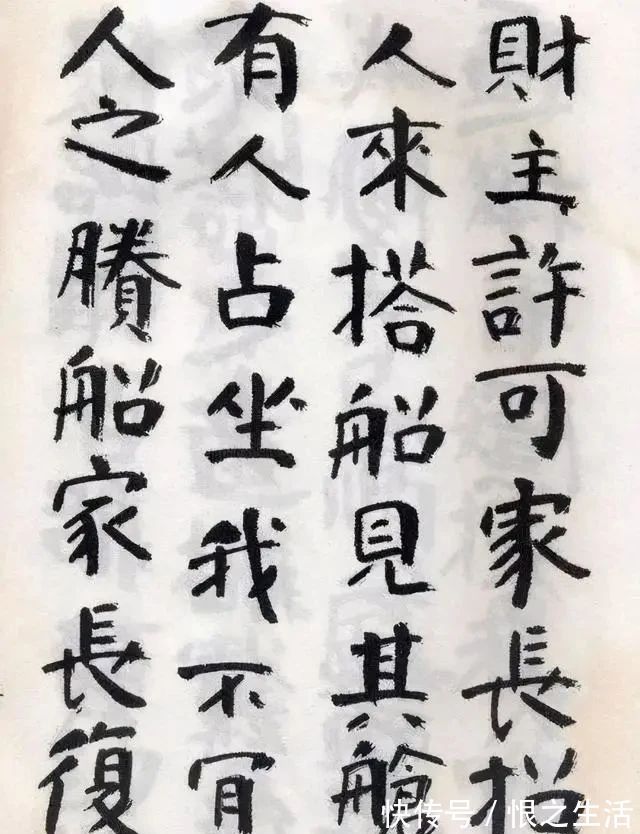 財主許可家長招
人來搭船見其艙
有人占坐我不冝
人之賸船家長復
快传号/恨之生活